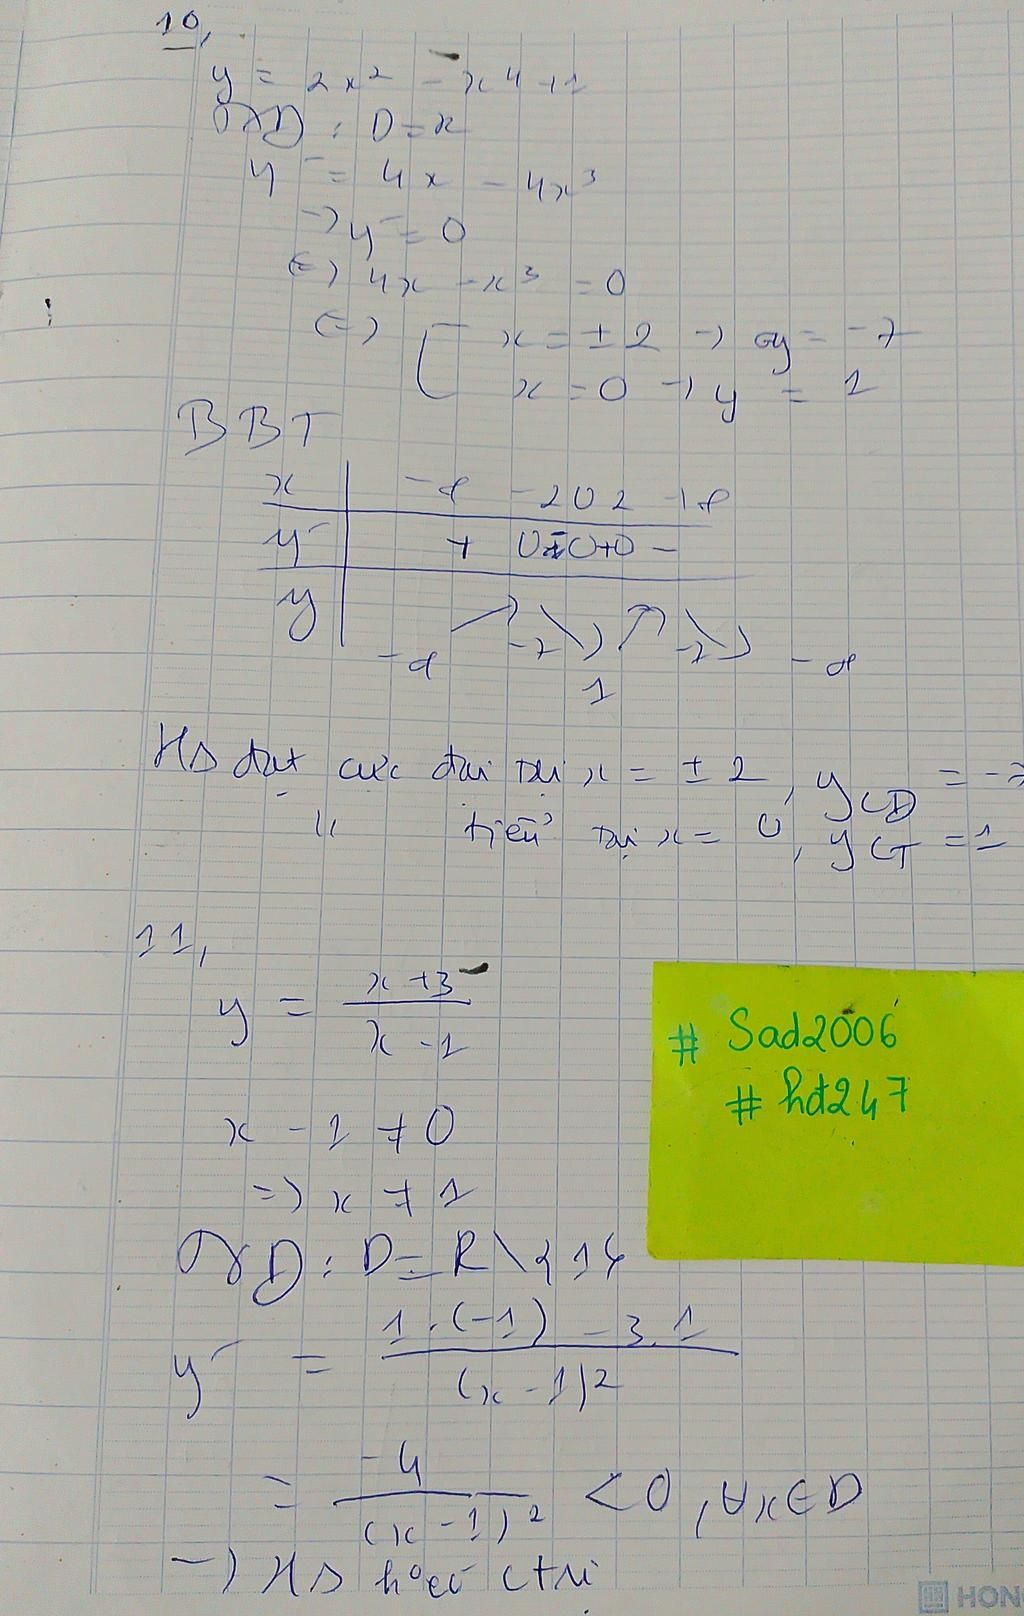 10,
y = 2x² - x⁴ + 1
TXD : D = R
y' = 4x - 4x³
→ y' = 0
⇔ 4x - x³ = 0
⇔ [ x = ±2 → y = -7
x = 0 → y = 1
BBT
x | -∞ -2 0 2 +∞
y' | + 0 - 0 + 0 -
y | -∞ ↗ -7 ↘ 1 ↗ -7 ↘ -∞
HS đạt cực đại tại x = ±2, y_CĐ = -7
" tiểu tại x = 0, y_CT = 1
11,
y = (x + 3)/(x - 1)
x - 1 ≠ 0
=> x ≠ 1
TXD : D = R \ {1}
y' = (1.(-1) - 3.1)/(x - 1)²
= -4/(x - 1)² < 0, ∀x ∈ D
→ HS ctrị
# Sad2006
# hđ247
HON